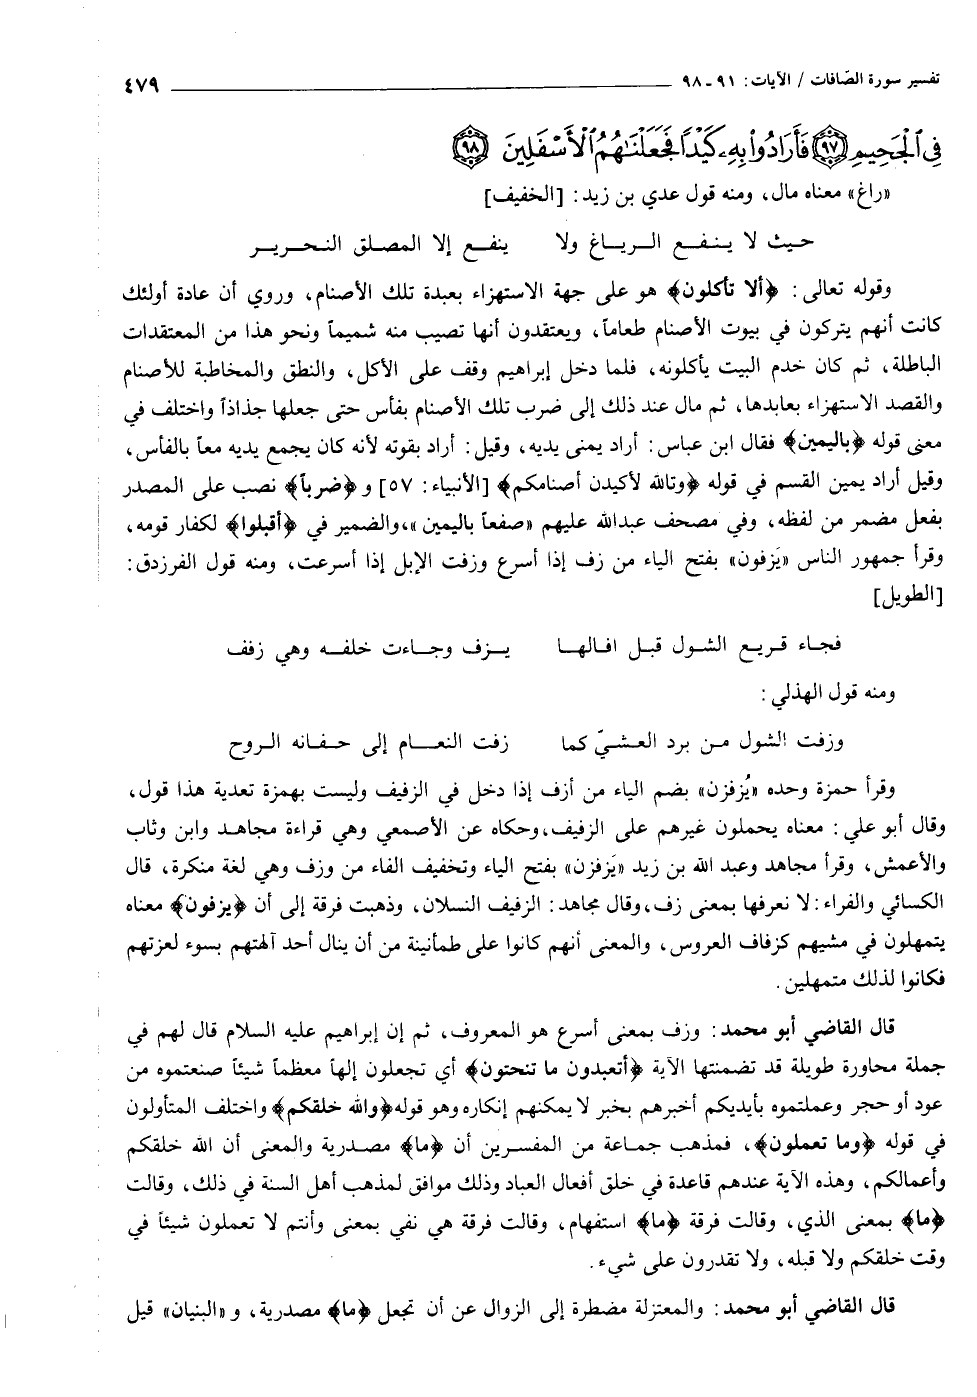 تفسير سورة الصّافات / الآيات: ٩١ - ٩٨ ٤٧٩
فِي ٱلْجَحِيمِ ﴿٩٧﴾ فَأَرَادُوا۟ بِهِۦ كَيْدًا فَجَعَلْنَٰهُمُ ٱلْأَسْفَلِينَ ﴿٩٨﴾
«راغ» معناه مال، ومنه قول عدي بن زيد: [الخفيف]
حيث لا ينفع الرياغ ولا ينفع إلا المصلق النحرير
وقوله تعالى: ﴿ألا تأكلون﴾ هو على جهة الاستهزاء بعبدة تلك الأصنام، وروي أن عادة أولئك
كانت أنهم يتركون في بيوت الأصنام طعاماً، ويعتقدون أنها تصيب منه شميماً ونحو هذا من المعتقدات
الباطلة، ثم كان خدم البيت يأكلونه، فلما دخل إبراهيم وقف على الأكل، والنطق والمخاطبة للأصنام
والقصد الاستهزاء بعابدها، ثم مال عند ذلك إلى ضرب تلك الأصنام بفأس حتى جعلها جذاذاً واختلف في
معنى قوله ﴿باليمين﴾ فقال ابن عباس: أراد يمنى يديه، وقيل: أراد بقوته لأنه كان يجمع يديه معاً بالفأس،
وقيل أراد يمين القسم في قوله ﴿وتالله لأكيدن أصنامكم﴾ [الأنبياء: ٥٧] و﴿ضرباً﴾ نصب على المصدر
بفعل مضمر من لفظه، وفي مصحف عبدالله عليهم «صفعاً باليمين»،والضمير في ﴿أقبلوا﴾ لكفار قومه،
وقرأ جمهور الناس «يَزفون» بفتح الياء من زف إذا أسرع وزفت الإبل إذا أسرعت، ومنه قول الفرزدق:
[الطويل]
فجاء قريع الشول قبل افالها يزف وجاءت خلفه وهي زفف
ومنه قول الهذلي:
وزفت الشول من برد العشيّ كما زفت النعام إلى حفانه الروح
وقرأ حمزة وحده «يُزفزن» بضم الياء من أزف إذا دخل في الزفيف وليست بهمزة تعدية هذا قول،
وقال أبو علي: معناه يحملون غيرهم على الزفيف،وحكاه عن الأصمعي وهي قراءة مجاهد وابن وثاب
والأعمش، وقرأ مجاهد وعبد الله بن زيد «يَزفزن» بفتح الياء وتخفيف الفاء من وزف وهي لغة منكرة، قال
الكسائي والفراء: لا نعرفها بمعنى زف،وقال مجاهد: الزفيف النسلان، وذهبت فرقة إلى أن ﴿يزفون﴾ معناه
يتمهلون في مشيهم كزفاف العروس، والمعنى أنهم كانوا على طمأنينة من أن ينال أحد آلهتهم بسوء لعزتهم
فكانوا لذلك متمهلين.
قال القاضي أبو محمد: وزف بمعنى أسرع هو المعروف، ثم إن إبراهيم عليه السلام قال لهم في
جملة محاورة طويلة قد تضمنتها الآية ﴿أتعبدون ما تنحتون﴾ أي تجعلون إلهاً معظماً شيئاً صنعتموه من
عود أو حجر وعملتموه بأيديكم أخبرهم بخبر لا يمكنهم إنكاره وهو قوله﴿والله خلقكم﴾ واختلف المتأولون
في قوله ﴿وما تعملون﴾، فمذهب جماعة من المفسرين أن ﴿ما﴾ مصدرية والمعنى أن الله خلقكم
وأعمالكم، وهذه الآية عندهم قاعدة في خلق أفعال العباد وذلك موافق لمذهب أهل السنة في ذلك، وقالت
﴿ما﴾ بمعنى الذي، وقالت فرقة ﴿ما﴾ استفهام، وقالت فرقة هي نفي بمعنى وأنتم لا تعملون شيئاً في
وقت خلقكم ولا قبله، ولا تقدرون على شيء.
قال القاضي أبو محمد: والمعتزلة مضطرة إلى الزوال عن أن تجعل ﴿ما﴾ مصدرية، و «البنيان» قيل